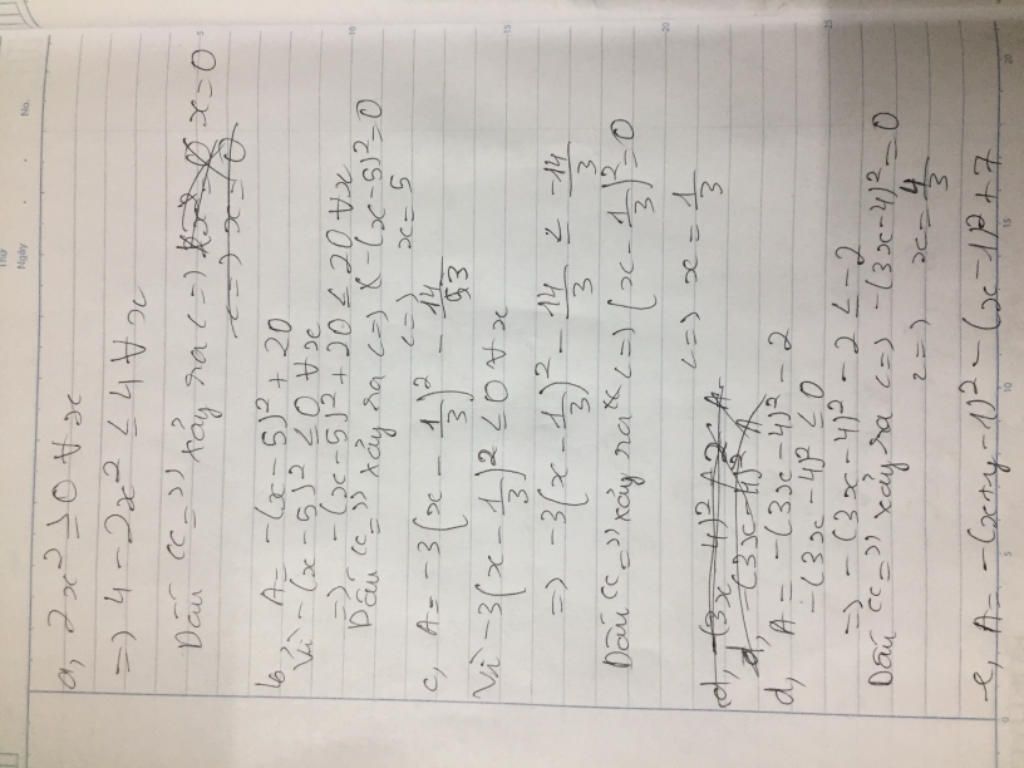 Thứ
Ngày
No.
a, 2x² ≥ 0 ∀x
=) 4 - 2x² ≤ 4 ∀x
Dấu "=" xảy ra <=) x=0
<=) x=0
b, A= -(x-5)² + 20
Vì -(x-5)² ≤ 0 ∀x
=) -(x-5)² + 20 ≤ 20 ∀x
Dấu "=" xảy ra <=) (-(x-5)²=0
<=) x=5
c, A= -3(x - 1/3)² - 14/3
Vì -3(x - 1/3)² ≤ 0 ∀x
=) -3(x - 1/3)² - 14/3 ≤ -14/3
Dấu "=" xảy ra <=) (x - 1/3)²=0
<=) x= 1/3
d, -(3x-4)²
d, -(3x-4)²
d, A= -(3x-4)² - 2
-(3x-4)² ≤ 0
=) -(3x-4)² - 2 ≤ -2
Dấu "=" xảy ra <=) -(3x-4)²=0
<=) x= 4/3
e, A= -(x+y-1)² - (x-1)² + 7
5
10
15
20
25
0
5
10
15
20